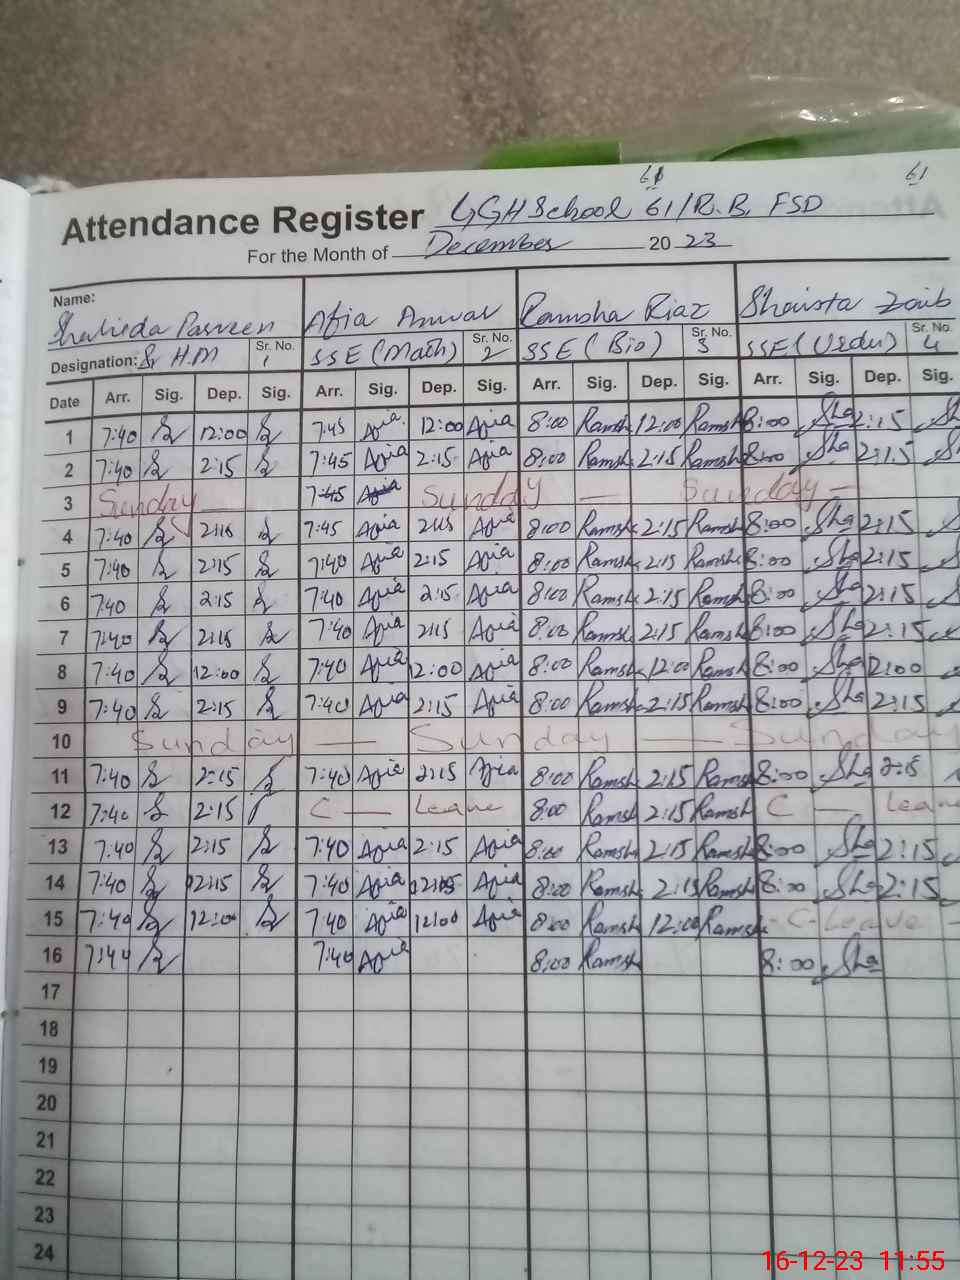 61 61
Attendance Register GGH School 61/R.B. FSD
For the Month of December 2023
Name:
Shahida Parveen Afia Anwar Ramsha Riaz Shaista Zaib
Designation: Sr H.M Sr. No. 1 SSE (Math) Sr. No. 2 SSE (Bio) Sr. No. 3 SSE (Urdu) Sr. No. 4
Date Arr. Sig. Dep. Sig. Arr. Sig. Dep. Sig. Arr. Sig. Dep. Sig. Arr. Sig. Dep. Sig.
1 7:40 12:00 7:45 Afia 12:00 Afia 8:00 Ramsh 12:00 Ramsh 8:00 Sha 2:15
2 7:40 2:15 7:45 Afia 2:15 Afia 8:00 Ramsh 2:15 Ramsh 8:00 Sha 2:15
3 Sunday 7:45 Afia Sunday — Sunday —
4 7:40 2:15 7:45 Afia 2:15 Afia 8:00 Ramsh 2:15 Ramsh 8:00 Sha 2:15
5 7:40 2:15 7:40 Afia 2:15 Afia 8:00 Ramsh 2:15 Ramsh 8:00 Sha 2:15
6 7:40 2:15 7:40 Afia 2:15 Afia 8:00 Ramsh 2:15 Ramsh 8:00 Sha 2:15
7 7:40 2:15 7:40 Afia 2:15 Afia 8:00 Ramsh 2:15 Ramsh 8:00 Sha 2:15
8 7:40 12:00 7:40 Afia 12:00 Afia 8:00 Ramsh 12:00 Ramsh 8:00 Sha 12:00
9 7:40 2:15 7:40 Afia 2:15 Afia 8:00 Ramsh 2:15 Ramsh 8:00 Sha 2:15
10 Sunday — Sunday — Sunday
11 7:40 2:15 7:40 Afia 2:15 Afia 8:00 Ramsh 2:15 Ramsh 8:00 Sha 2:15
12 7:40 2:15 C — Leave 8:00 Ramsh 2:15 Ramsh C — Leave
13 7:40 2:15 7:40 Afia 2:15 Afia 8:00 Ramsh 2:15 Ramsh 8:00 Sha 2:15
14 7:40 2:15 7:40 Afia Afia 8:00 Ramsh 2:15 Ramsh 8:00 Sha 2:15
15 7:40 12:00 7:40 Afia 12:00 Afia 8:00 Ramsh 12:00 Ramsh - C-Leave -
16 7:40 7:40 Afia 8:00 Ramsh 8:00 Sha
17
18
19
20
21
22
23
24
16-12-23 11:55